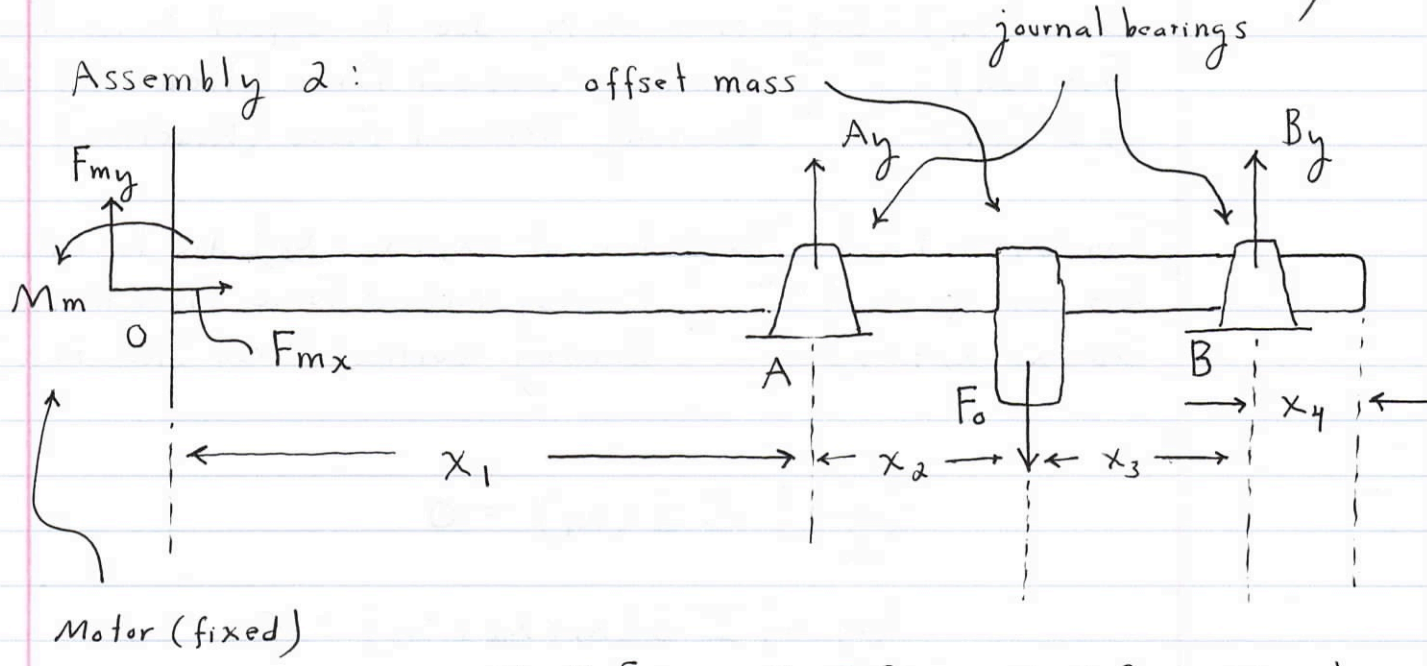 journal bearings
Assembly 2:
offset mass
Fmy
Ay
By
Mm
O
Fmx
A
Fo
B
x4
x1
x2
x3
Motor (fixed)